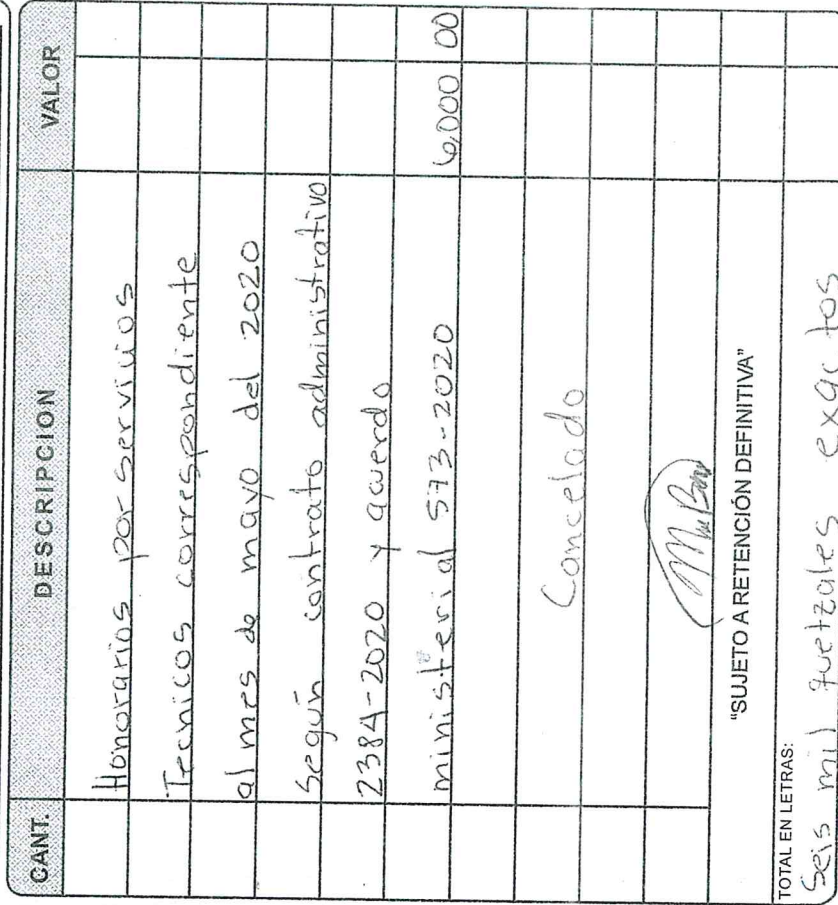 CANT. DESCRIPCION VALOR
Honorarios por servicios
Tecnicos correspondiente
al mes de mayo del 2020
Según contrato administrativo
2384-2020 y acuerdo
ministerial 573-2020 6,000 00
Cancelado
"SUJETO A RETENCIÓN DEFINITIVA"
TOTAL EN LETRAS:
Seis mil quetzales exactos